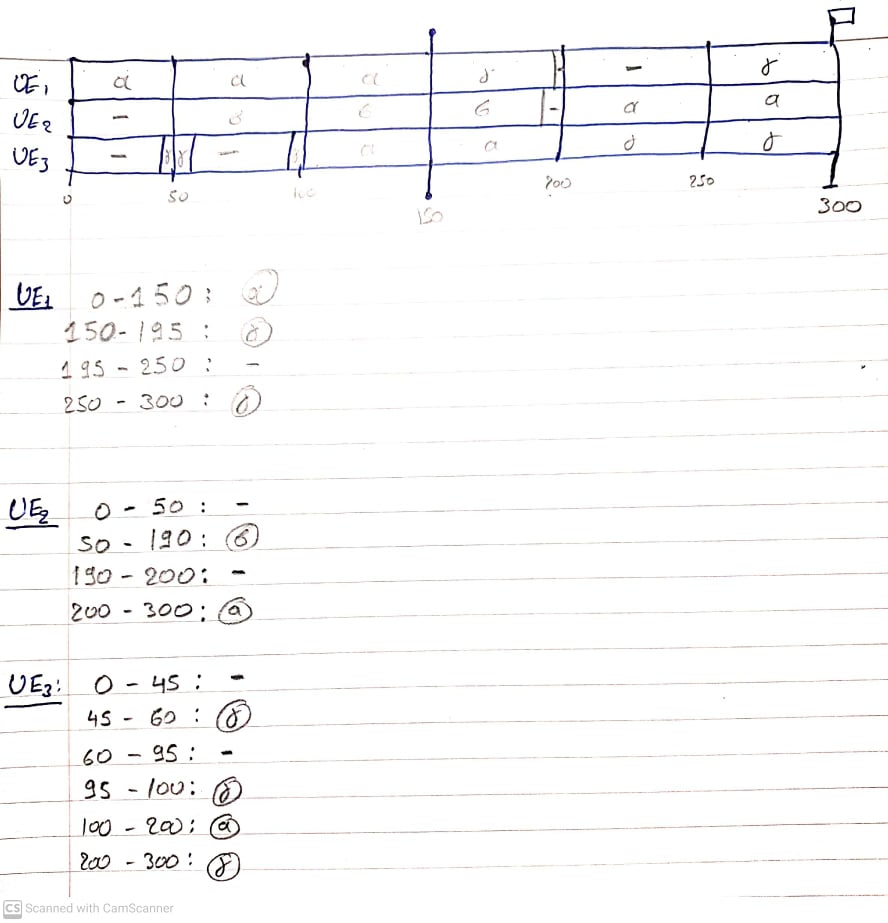 UE₁ a a a γ - - γ
UE₂ - 6 6 6 - a a
UE₃ - γ γ - γ a a γ γ
0 50 100 150 200 250 300
UE₁ 0 - 150 : a
150 - 195 : γ
195 - 250 : -
250 - 300 : γ
UE₂ 0 - 50 : -
50 - 190 : 6
190 - 200 : -
200 - 300 : a
UE₃: 0 - 45 : -
45 - 60 : γ
60 - 95 : -
95 - 100 : γ
100 - 200 : a
200 - 300 : γ
CS Scanned with CamScanner